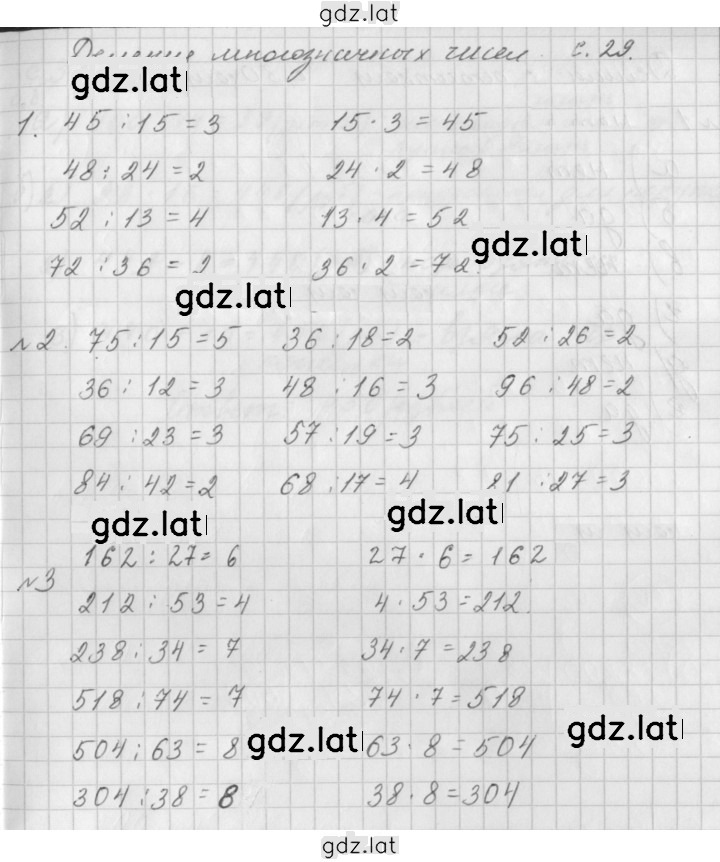 gdz.lat
Деление многозначных чисел с. 29.
gdz.lat
1. 45 : 15 = 3 15 · 3 = 45
48 : 24 = 2 24 · 2 = 48
52 : 13 = 4 13 · 4 = 52
gdz.lat
72 : 36 = 2 36 · 2 = 72.
gdz.lat
№2. 75 : 15 = 5 36 : 18 = 2 52 : 26 = 2
36 : 12 = 3 48 : 16 = 3 96 : 48 = 2
69 : 23 = 3 57 : 19 = 3 75 : 25 = 3
84 : 42 = 2 68 : 17 = 4 81 : 27 = 3
gdz.lat gdz.lat
№3 162 : 27 = 6 27 · 6 = 162
212 : 53 = 4 4 · 53 = 212.
238 : 34 = 7 34 · 7 = 238
518 : 74 = 7 74 · 7 = 518
504 : 63 = 8 gdz.lat 63 · 8 = 504 gdz.lat
304 : 38 = 8 38 · 8 = 304
gdz.lat